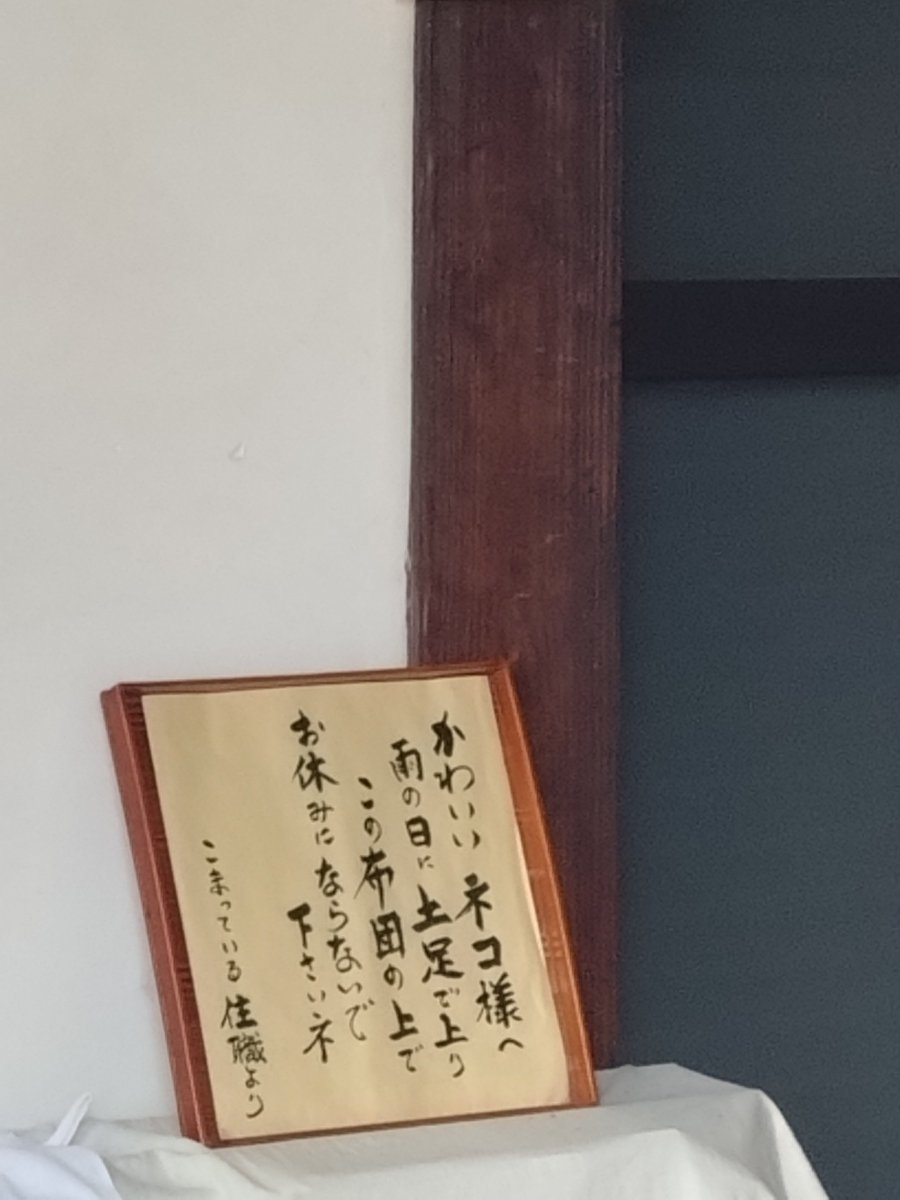 かわいいネコ様へ
雨の日に土足で上り
この布団の上で
お休みにならないで
下さいネ
こまっている住職より